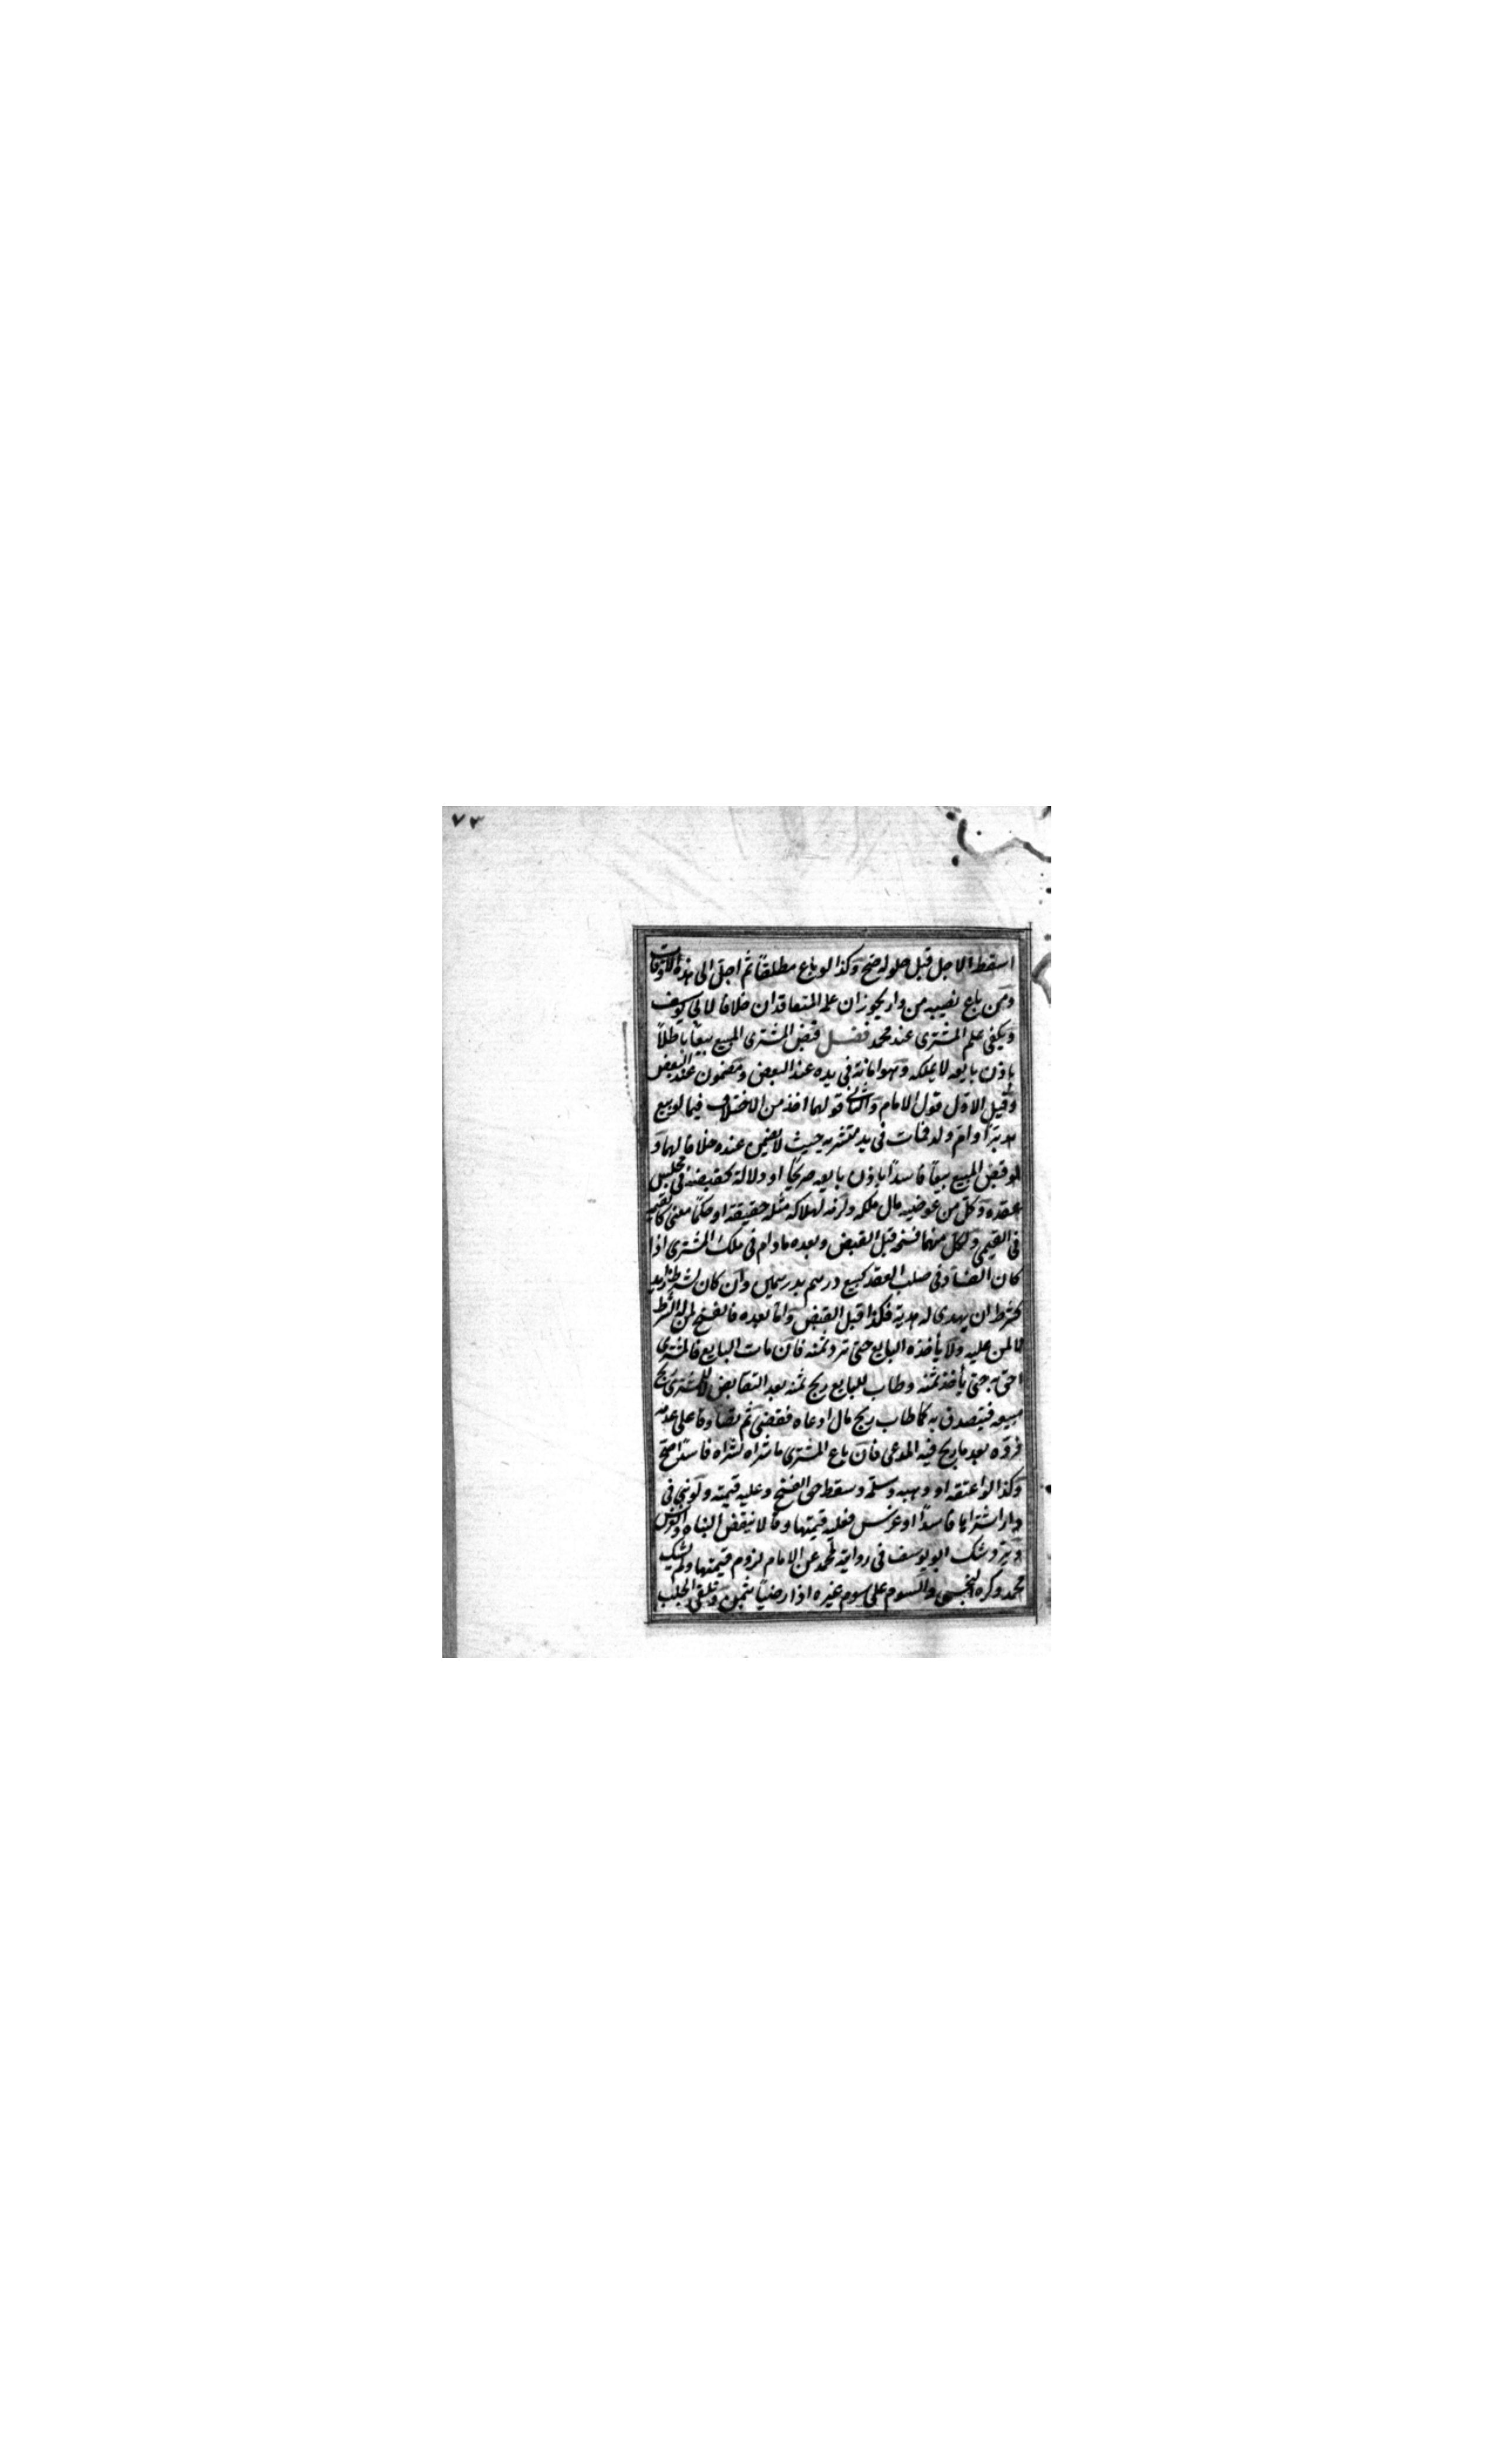 ٧٣
اسقط الاجل قبل حلوله صح وكذا لو باع مطلقاً ثم اجل الى هذه الاوقات
ومن باع نصيبه من دار يجوز ان علم المتعاقدان خلافا لابي يوسف
ويكفى علم المشترى عند محمد فصل قبض المشترى المبيع بيعاً باطلاً
باذن بايعه لا يملكه وهو امانة فى يده عند البعض ومضمون عند البعض
وقيل الاول قول الامام والثانى قولهما اخذ من الاختلاف فيما لو بيع
مدبرًا وام ولد فمات فى يد مشتريه حيث لا يضمن عنده خلافا لهما و
لو قبض المبيع بيعاً فاسداً باذن بايعه صريحًا او دلالة كقبضه فى مجلس
عقده وكل من عوضيه مال ملكه ولزمه لهلاكه مثله حقيقة او حكمًا معنى كالقيمة
فى القيمى ولكل منهما فسخه قبل القبض وبعده مادام فى ملك المشترى اذا
كان الفساد فى صلب العقد كبيع درهم بدرهمين وان كان لشرط زايد
كشرط ان يهدى له هدية فكذا قبل القبض واما بعده فالفسخ لمن له الشرط
لا لمن عليه ولا يأخذه البايع حتى ترد ثمنه فان مات البايع فالمشترى
احق به حتى يأخذ ثمنه وطاب للبايع ربح ثمنه بعد التقابض لا للمشترى ربح
مبيعه فيتصدق به كما طاب ربح مال ادعاه فقضى ثم تصادقا على عدمه
فرده بعد ما ربح فيه المدعى فان باع المشترى ما شراه شراه فاسدًا صح
وكذا لو اعتقه او وهبه وسلمه وسقط حق الفسخ وعليه قيمته ولو بنى فى
دار اشتراها فاسداً او غرس فعليه قيمتها وقالا ينقض البناء والغرس
وترد وشك ابو يوسف فى رواية محمد عن الامام لزوم قيمتها ولم يشك
محمد وكره النجش والسوم على سوم غيره اذا رضيا بثمن وتلقى الجلب